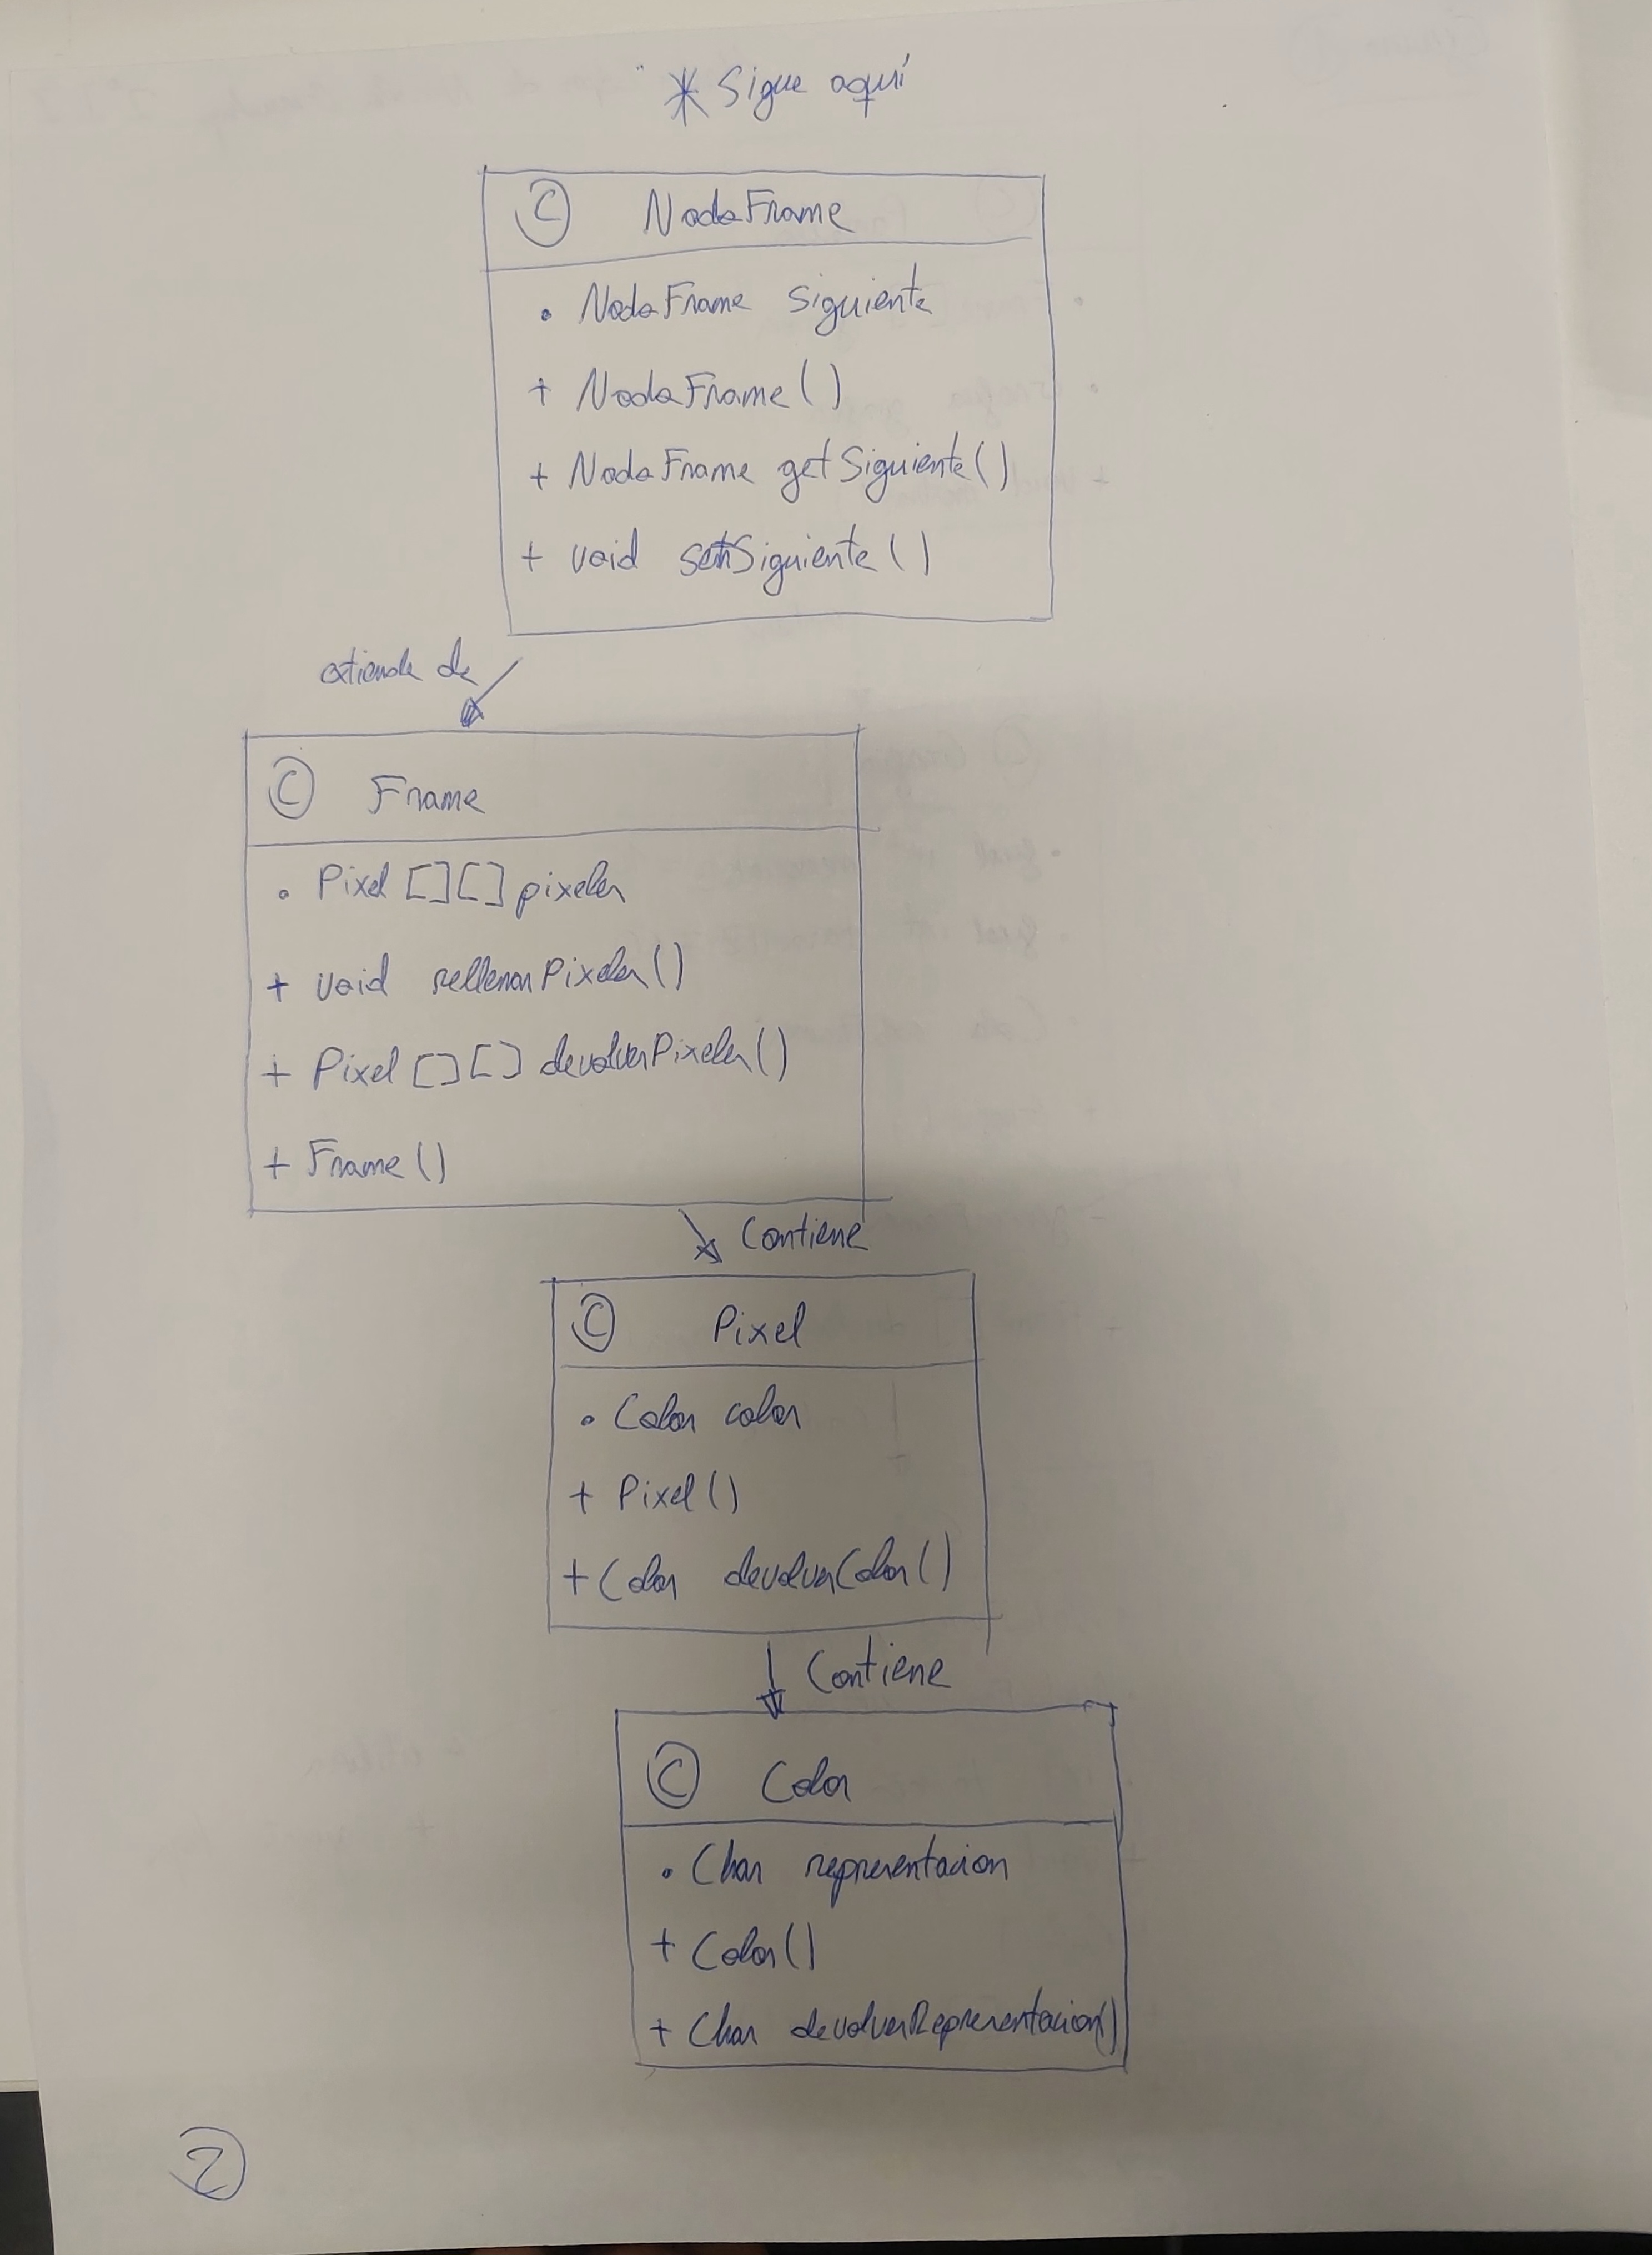 * Sigue aquí
C NodoFrame
• NodoFrame siguiente
+ NodoFrame()
+ NodoFrame getSiguiente()
+ void setSiguiente()
extiende de
C Frame
• Pixel [][] pixeles
+ void rellenarPixeles()
+ Pixel [][] devolverPixeles()
+ Frame()
Contiene
C Pixel
• Color color
+ Pixel()
+ Color devolverColor()
Contiene
C Color
• Char representacion
+ Color()
+ Char devolverRepresentacion()
2